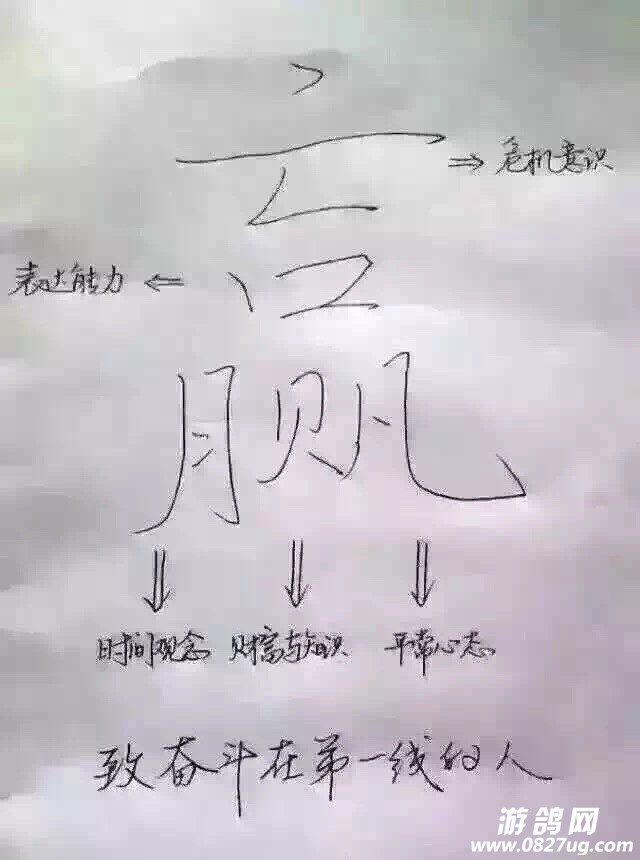 亡
⇒ 危机意识
表达能力 ⇐
口
月贝凡
时间观念 财富与知识 平常心态
致奋斗在第一线的人
游鸽网
www.0827ug.com